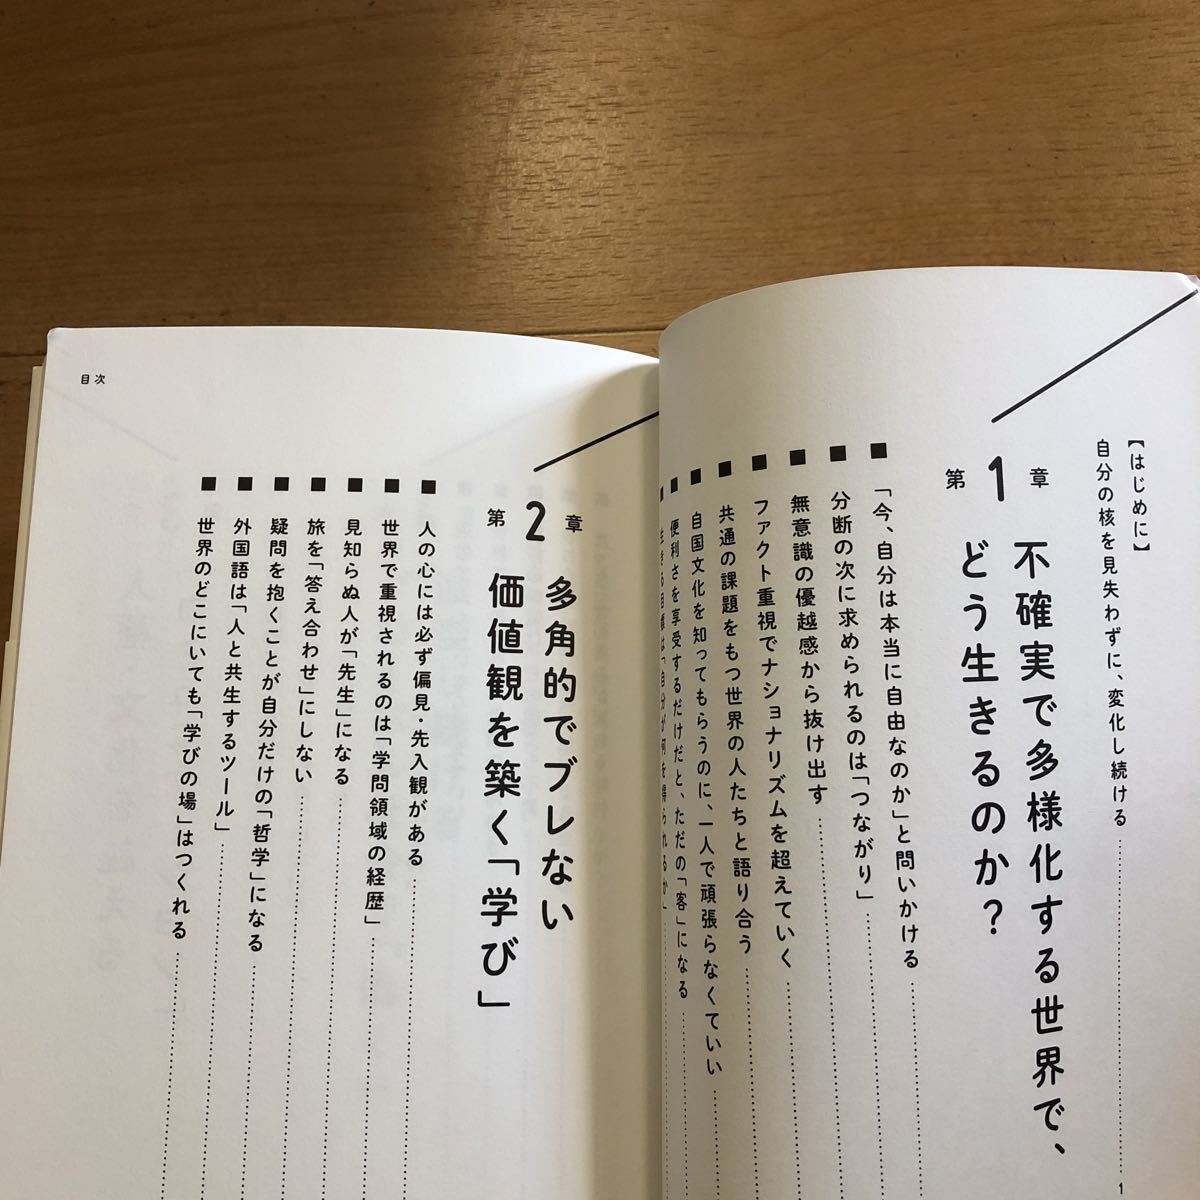 【はじめに】
自分の核を見失わずに、変化し続ける
1
第1章
不確実で多様化する世界で、
どう生きるのか？
■「今、自分は本当に自由なのか」と問いかける
■分断の次に求められるのは「つながり」
■無意識の優越感から抜け出す
■ファクト重視でナショナリズムを超えていく
■共通の課題をもつ世界の人たちと語り合う
■自国文化を知ってもらうのに、一人で頑張らなくていい
■便利さを享受するだけだと、ただの「客」になる
■生きる目標は「自分が何を得られるか」
目次
第2章
多角的でブレない
価値観を築く「学び」
■人の心には必ず偏見・先入観がある
■世界で重視されるのは「学問領域の経歴」
■見知らぬ人が「先生」になる
■旅を「答え合わせ」にしない
■疑問を抱くことが自分だけの「哲学」になる
■外国語は「人と共生するツール」
■世界のどこにいても「学びの場」はつくれる